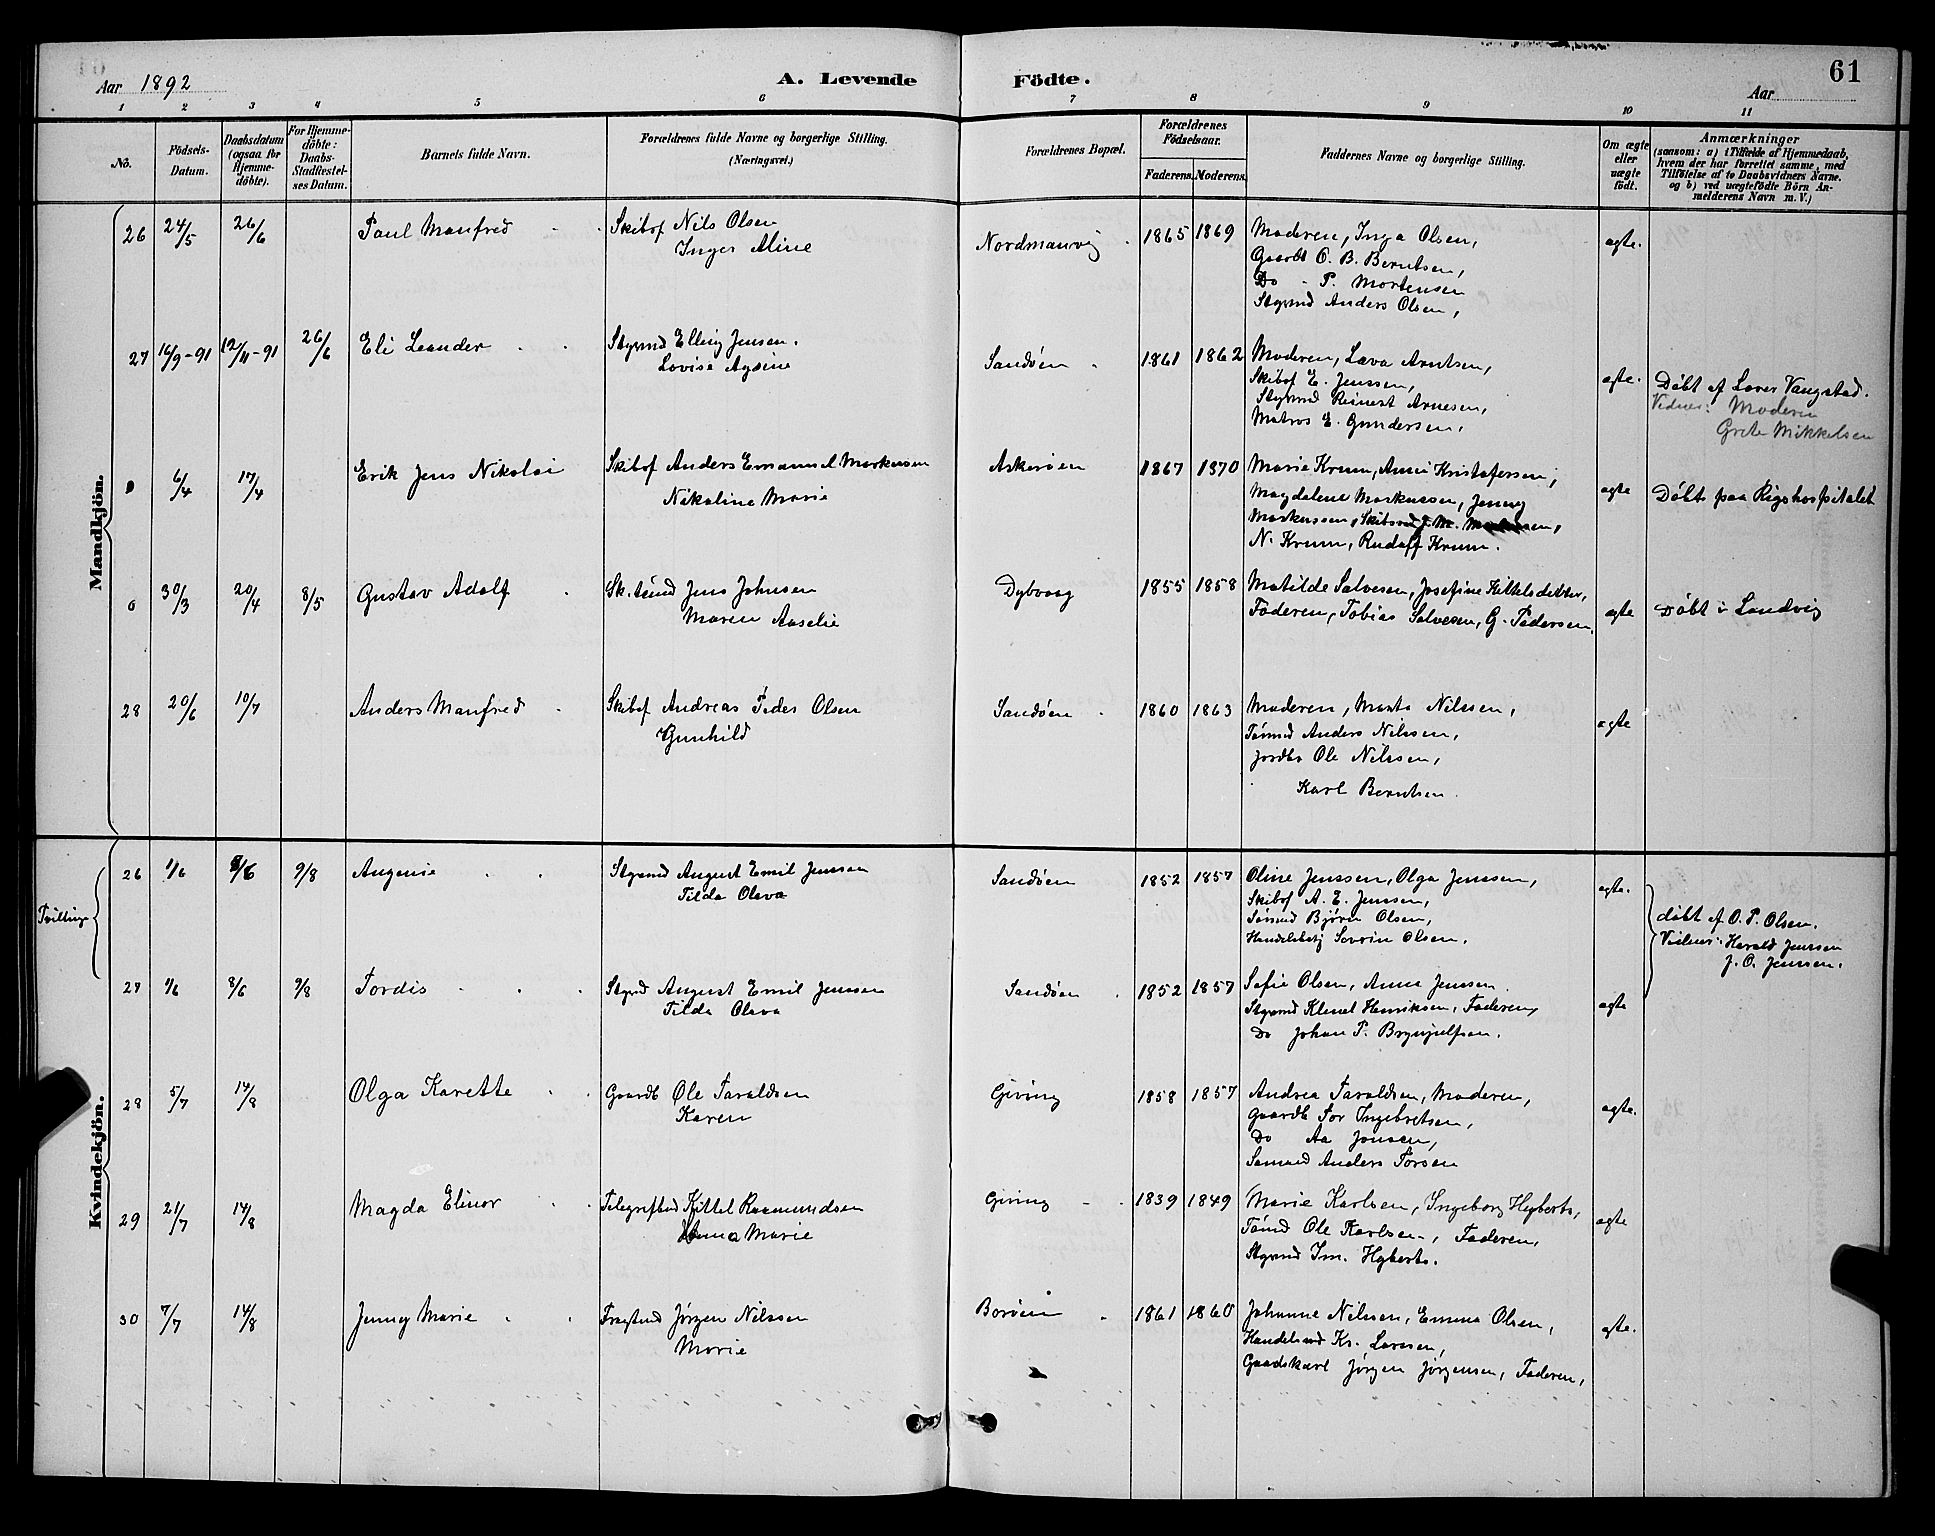 Aar 1892 A. Levende Födte. Aar 61
1 2 3 4 5 6 7 8 9 10 11
No.
Födsels-Datum.
Daabsdatum (ogsaa for Hjemme-döbte).
For Hjemme-döbte: Daabs-Stadfæstel-ses Datum.
Barnets fulde Navn.
Forældrenes fulde Navne og borgerlige Stilling.
(Næringsvei.)
Forældrenes Bopæl.
Forældrenes Födselsaar.
Faderens. Moderens.
Faddernes Navne og borgerlige Stilling.
Om ægte eller uægte födt.
Anmærkninger
(saasom: a) i Tilfælde af Hjemmedaab,
hvem der har forrettet samme, med
Tilföielse af to Daabsvidners Navne.
og b) ved uægtefödte Börn An-
melderens Navn m. V.)
Mandkjön.
26 24/5 26/6 Paul Manfred Skibsf Nils Olsen Nordmanvig 1865 1869 Moderen, Inga Olsen, ægte.
Inger Aline Gaardb O. B. Berntsen,
Do P. Mortensen
Styrmd Anders Olsen,
27 16/9-91 12/11-91 26/6 Eli Leander Styrmd Elling Jensen. Sandøen 1861 1862 Moderen, Lava Arntsen, ægte. Døbt af Lærer Vangstad.
Lovise Aysine Skibsf E. Jenssen, Vidner: Moderen
Styrmd Reinert Arnesen, Grete Mikkelsen
Matros E. Gundersen,
0 6/4 17/4 Erik Jens Nikolai Skibsf Anders Emanuel Markussen Askerøen 1867 1870 Marie Krum, Anne Kristofersen, ægte Døbt paa Rigshospitalet
Nikoline Marie Magdalene Markussen, Jenny
Markussen,
N. Krum, Rudolf Krum.
0 30/3 20/4 8/5 Gustav Adolf Jens Johnsen Dybvaag 1855 1858 Matilde Salvesen, Josefine Kittelsdatter, ægte Døbt i Landvig
Maren Aaselie Faderen, Tobias Salvesen, G. Pedersen.
28 20/6 10/7 Anders Manfred Skibsf Andreas Peder Olsen Sandøen 1860 1863 Moderen, Marta Nilssen, ægte
Gunhild Tømmd Anders Nilssen,
Jordbr Ole Nilssen,
Karl Berntsen
Kvindekjön.
Tvillinge
26 1/6 8/6 9/8 Angenie Styrmd August Emil Jenssen Sandøen 1852 1857 Oline Jenssen, Olga Jenssen, ægte.
Tilda Olava Skibsf A. E. Jenssen, døbt af O. P. Olsen.
Sømnd Bjørn Olsen, Vidner: Harald Jenssen
Handelsbetj Severin Olsen. J. O. Jenssen.
27 1/6 8/6 9/8 Tordis Styrmd August Emil Jenssen Sandøen 1852 1857 Sofie Olsen, Anna Jenssen ægte
Tilda Olava Styrmd Klemet Henriksen, Faderen,
Do Johan P. Brynjulfsen.
28 5/7 14/8 Olga Karette Gaardb Ole Taraldsen Giving 1858 1857 Andrea Taraldsen, Moderen, ægte.
Karen Gaardb Tor Ingebretsen,
Do Aa Jonsen,
Sømand Anders Torsen
29 21/7 14/8 Magda Elinor Telegrafbud Kittel Rasmundsen Giving 1839 1849 Marie Karlsen, Ingeborg Hyberts, ægte
Anna Marie Tømd Ole Karlsen, Faderen,
Styrmd Im. Hyberts.
30 7/7 14/8 Jenny Marie Jørgen Nilssen Borøen 1861 1860 Johanne Nilssen, Emma Olsen, ægte.
Marie Handelsmd Kr. Larssen,
Gaardskarl Jørgen Jørgensen, Faderen,